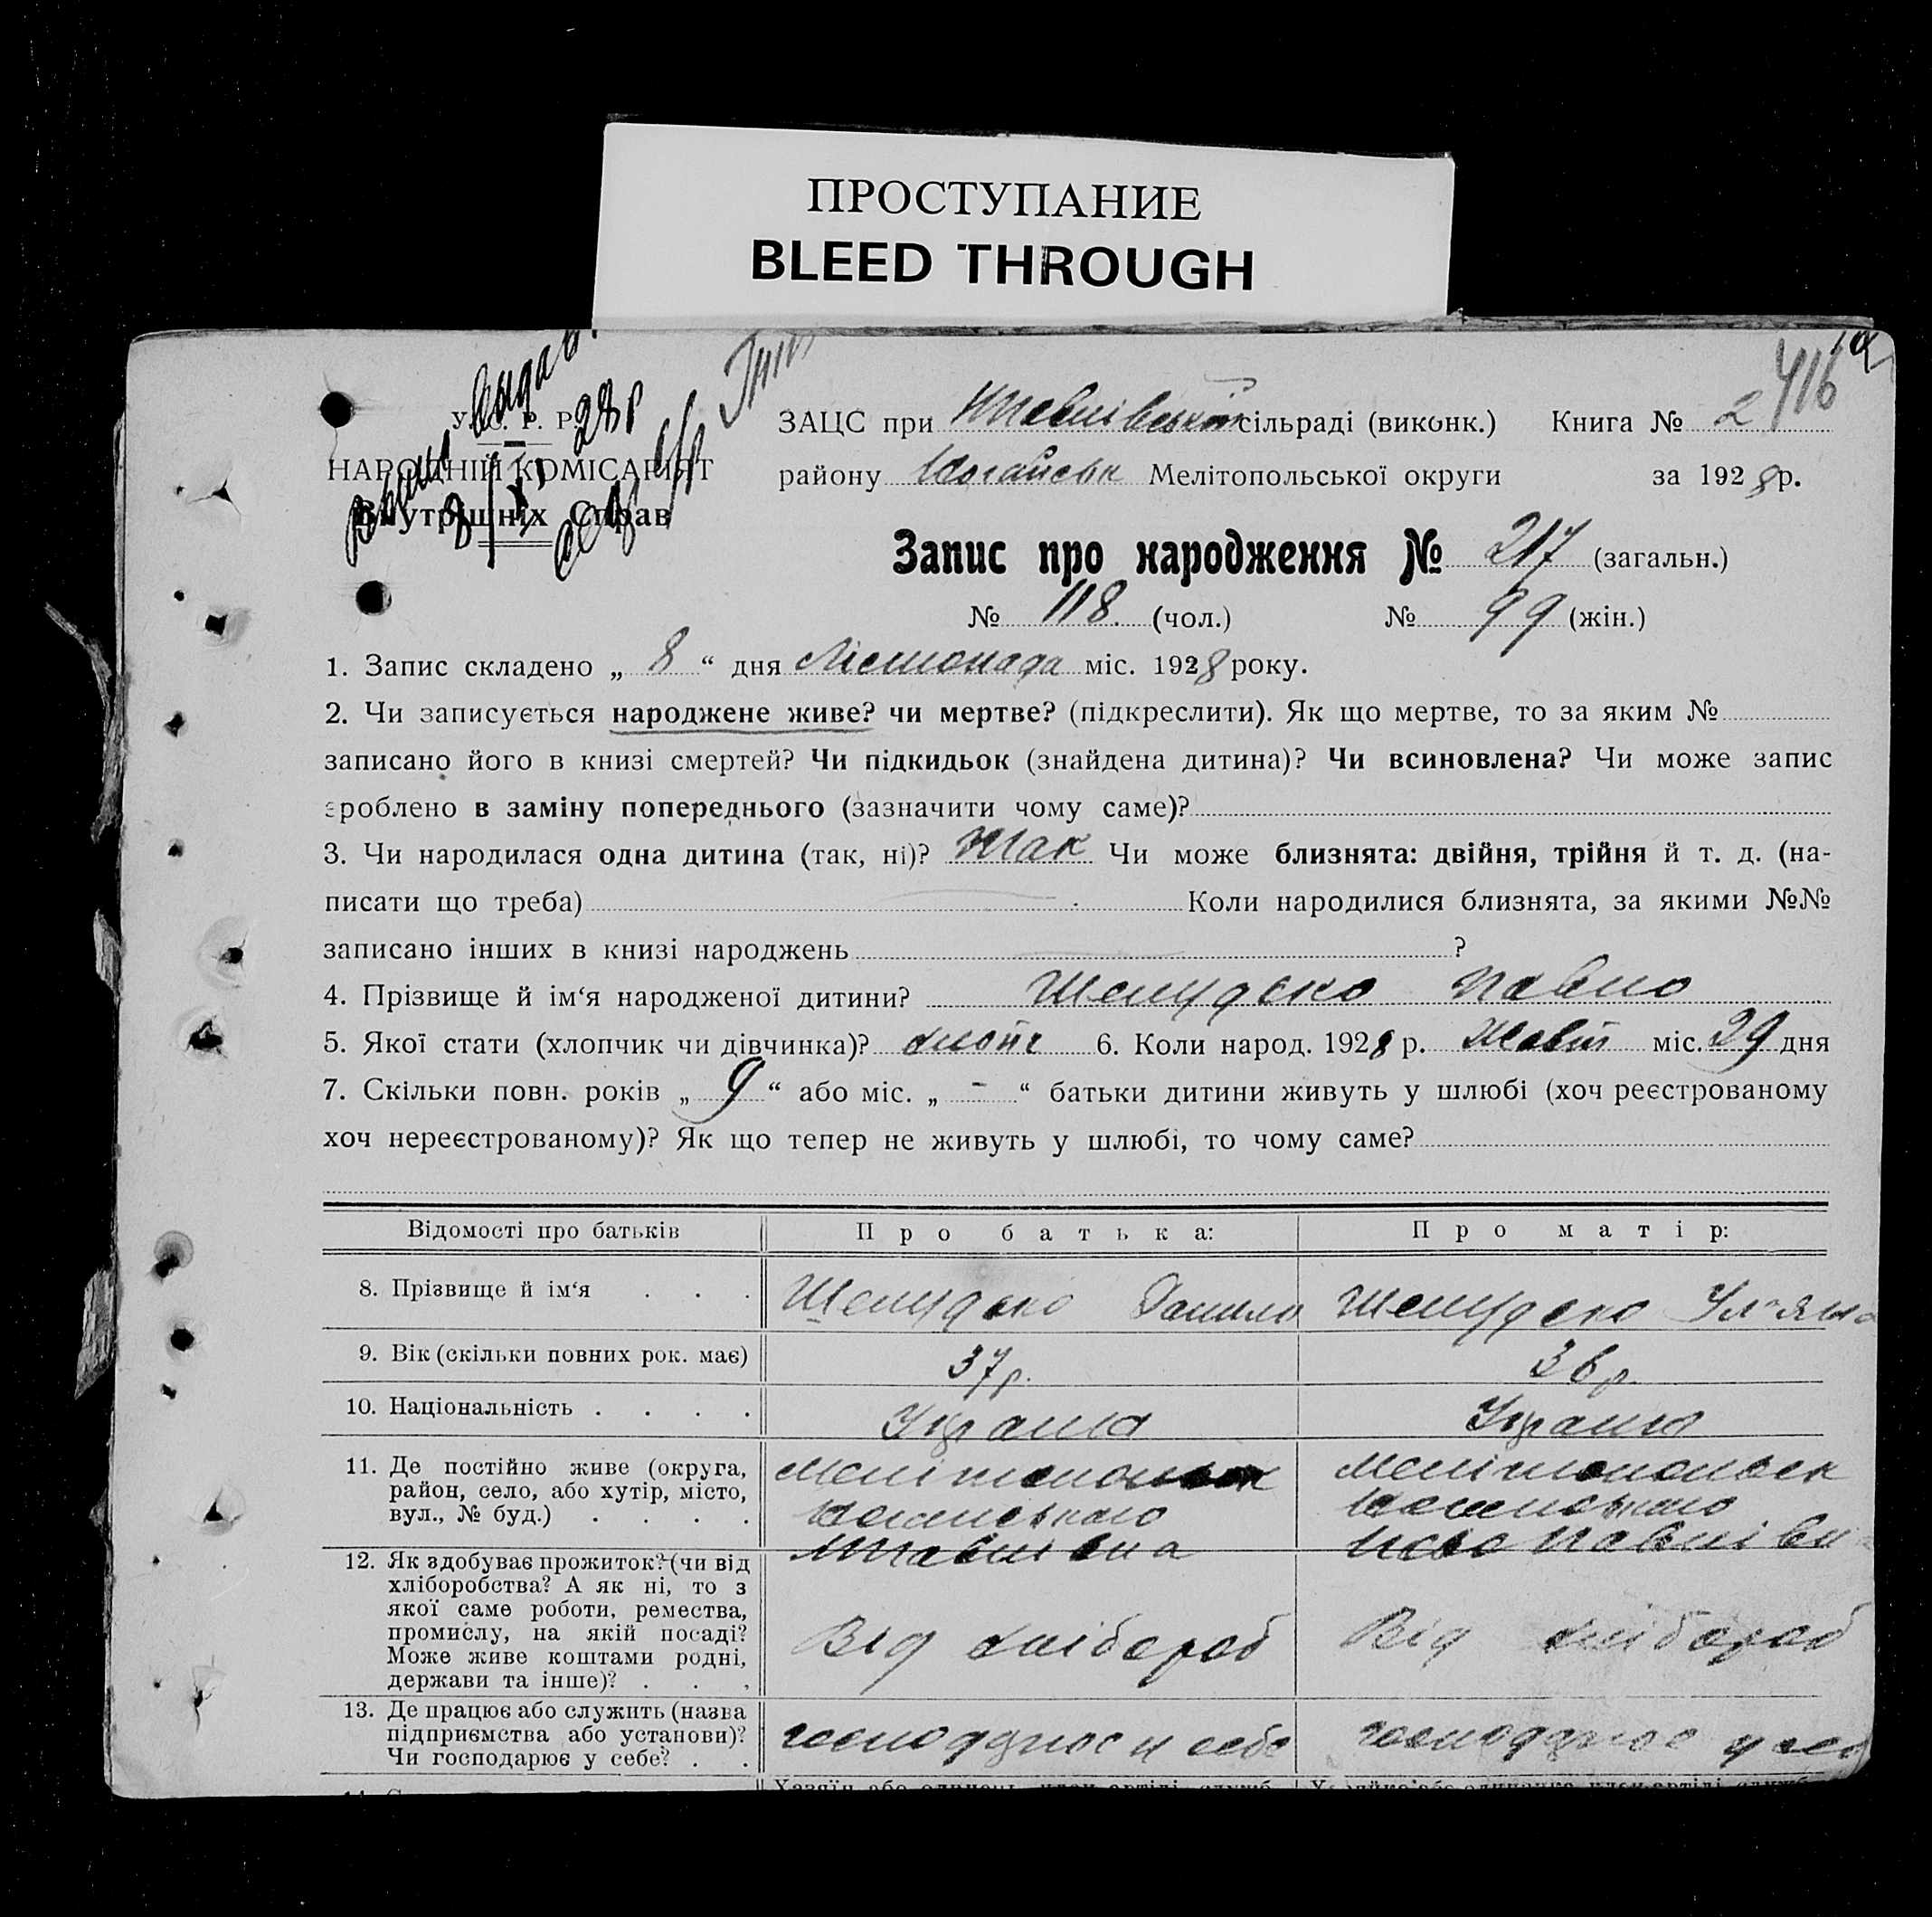 ПРОСТУПАНИЕ
BLEED THROUGH
416
У. С. Р. Р.
НАРОДНІЙ КОМІСАРІЯТ
Внутрішніх Справ
28р
ЗАЦС при сільраді (виконк.) Книга № 2
району Ногайськ Мелітопольської округи за 1928р.
Запис про народження № 217 (загальн.)
№ 118 (чол.) № 99 (жін.)
1. Запис складено „ 8 “ дня Лістопада міс. 1928 року.
2. Чи записується народжене живе? чи мертве? (підкреслити). Як що мертве, то за яким №
записано його в книзі смертей? Чи підкидьок (знайдена дитина)? Чи всиновлена? Чи може запис
зроблено в заміну попереднього (зазначити чому саме)?
3. Чи народилася одна дитина (так, ні)? Так Чи може близнята: двійня, трійня й т. д. (на-
писати що треба) Коли народилися близнята, за якими №№
записано інших в книзі народжень ?
4. Прізвище й ім‘я народженої дитини? Шелудько Павло
5. Якої стати (хлопчик чи дівчинка)? хлопч 6. Коли народ. 1928 р. Жовт міс. 29 дня
7. Скільки повн. років „ 9 “ або міс. „ - “ батьки дитини живуть у шлюбі (хоч реєстрованому
хоч нереєстрованому)? Як що тепер не живуть у шлюбі, то чому саме?
Відомості про батьків Про батька: Про матір:
8. Прізвище й ім‘я . . . Шелудько Данило Шелудько Ул‘яна
9. Вік (скільки повних рок. має) 37р. 36р.
10. Національність . . . . Україна Україна
11. Де постійно живе (округа,
район, село, або хутір, місто,
вул., № буд.) . . . .
Мелітопольськ
Мелітопольськ
Ново Павлівк
12. Як здобуває прожиток? (чи від
хліборобства? А як ні, то з
якої саме роботи, ремества,
промислу, на якій посаді?
Може живе коштами родні,
держави та інше)? . . .
Від хлібороб
Від хлібороб
13. Де працює або служить (назва
підприємства або установи)?
Чи господарює у себе? . .
у себе